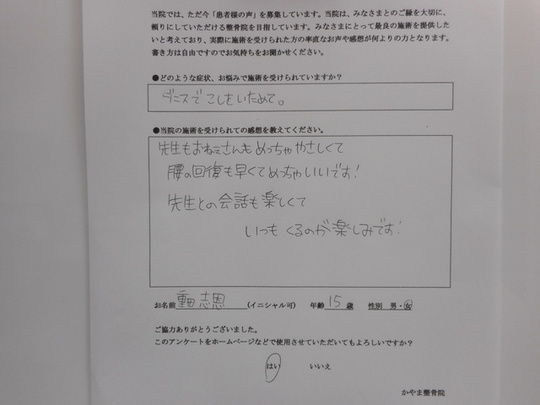 当院では、ただ今「患者様の声」を募集しています。当院は、みなさまとのご縁を大切に、
頼りにしていただける整骨院を目指しています。みなさまにとって最良の施術を提供した
いと考えており、実際に施術を受けられた方の率直なお声や感想が何よりの力となります。
書き方は自由ですのでお気持ちをお聞かせください。
●どのような症状、お悩みで施術を受けられていますか?
テニスでこしをいためて。
●当院の施術を受けられての感想を教えてください。
先生もおねえさんもめっちゃやさしくて
腰の回復も早くてめっちゃいいです!
先生との会話も楽しくて
いつもくるのが楽しみです!
お名前 重田 志恩 (イニシャル可) 年齢 15 歳 性別 男・女
ご協力ありがとうございました。
このアンケートをホームページなどで使用させていただいてもよろしいですか?
はい いいえ
かやま整骨院